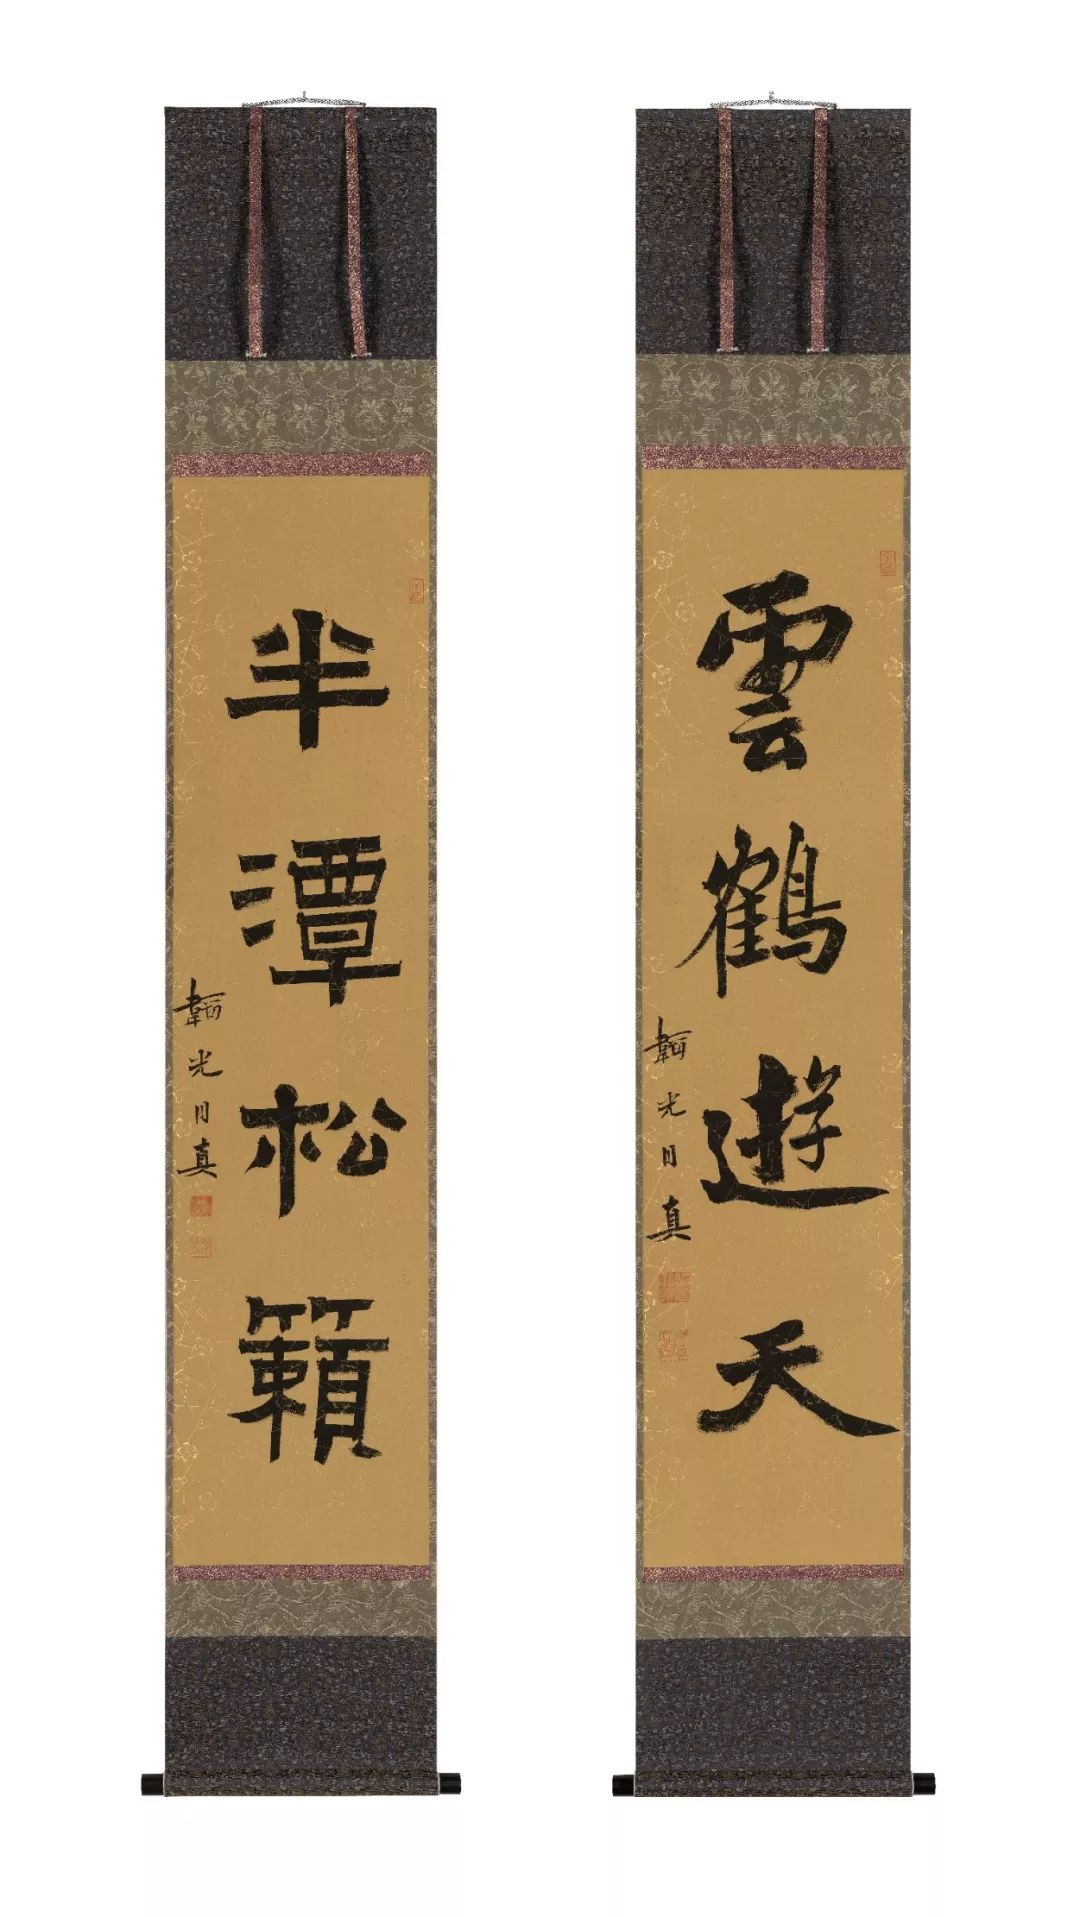 雲鶴遊天
韜光月真
半潭松籟
韜光月真